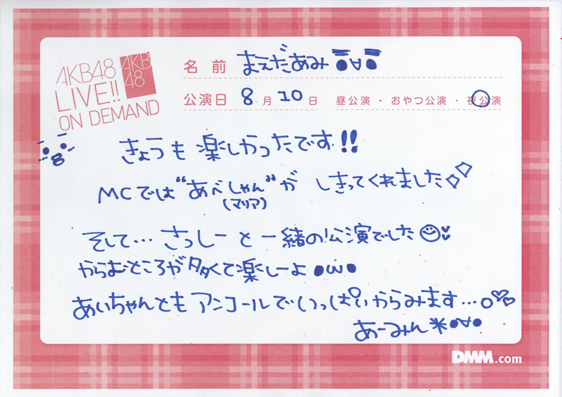 AKB48
LIVE!!
ON DEMAND
AKB
48
名 前 まえだあみ
公演日 8 月 10 日 昼公演 ・ おやつ公演 ・ 夜公演
きょうも楽しかったです!!
MCでは"あべしゃん"が しきってくれました
(マリア)
そして… さっしーと一緒の公演でした
からむところが多くて楽しーよ ●ω●
あいちゃんともアンコールでいっぱいからみます…
あーみん*●∀●
DMM.com